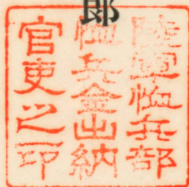 郎
陸軍恤兵部
恤兵金出納
官吏之印